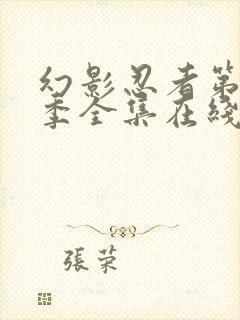 幻影忍者第
季全集在线
張荣